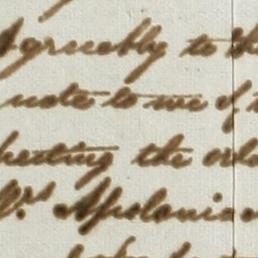 Agreeably to th
note to me of
pecting the
Mrs Apolonia